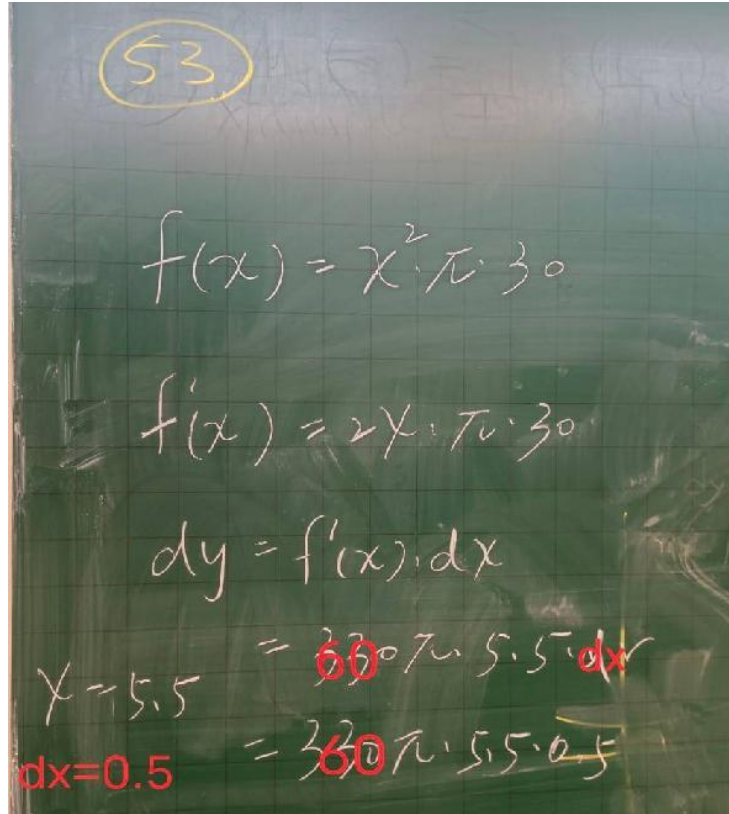 53
f(x) = x²·π·30
f'(x) = 2x·π·30
dy = f'(x)·dx
= 60π·5.5·dx
x=5.5
= 60π·5.5·0.5
dx=0.5